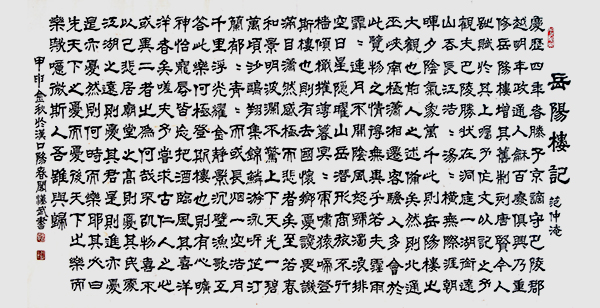 岳陽樓記 范仲淹
慶歷四年春滕子京謫守巴陵郡
越明年政通人和百廢俱興乃重
修岳陽樓增其舊制刻唐賢今人
詩賦於其上囑予作文以記之予
觀夫巴陵勝狀在洞庭一湖銜遠
山吞長江浩浩湯湯橫無際涯朝
暉夕陰氣象萬千此則岳陽樓之
大觀也前人之述備矣然則北通
巫峽南極瀟湘遷客騷人多會於
此覽物之情得無異乎若夫霪雨
霏霏連月不開陰風怒號濁浪排
空日星隱曜山岳潛形商旅不行
檣傾楫摧薄暮冥冥虎嘯猿啼登
斯樓也則有去國懷鄉憂讒畏譏
滿目蕭然感極而悲者矣至若春
和景明波瀾不驚上下天光一碧
萬頃沙鷗翔集錦鱗游泳岸芷汀
蘭郁郁青青而或長煙一空皓月
千里浮光耀金靜影沉璧漁歌互
答此樂何極登斯樓也則有心曠
神怡寵辱皆忘把酒臨風其喜洋
洋者矣嗟夫予嘗求古仁人之心
或異二者之為何哉不以物喜不
以己悲居廟堂之高則憂其民處
江湖之遠則憂其君是則進亦憂
退亦憂然則何時而樂耶其必曰
先天下之憂而憂後天下之樂而
樂歟噫微斯人吾誰與歸
甲申金秋於漢口陽春閣謹武書